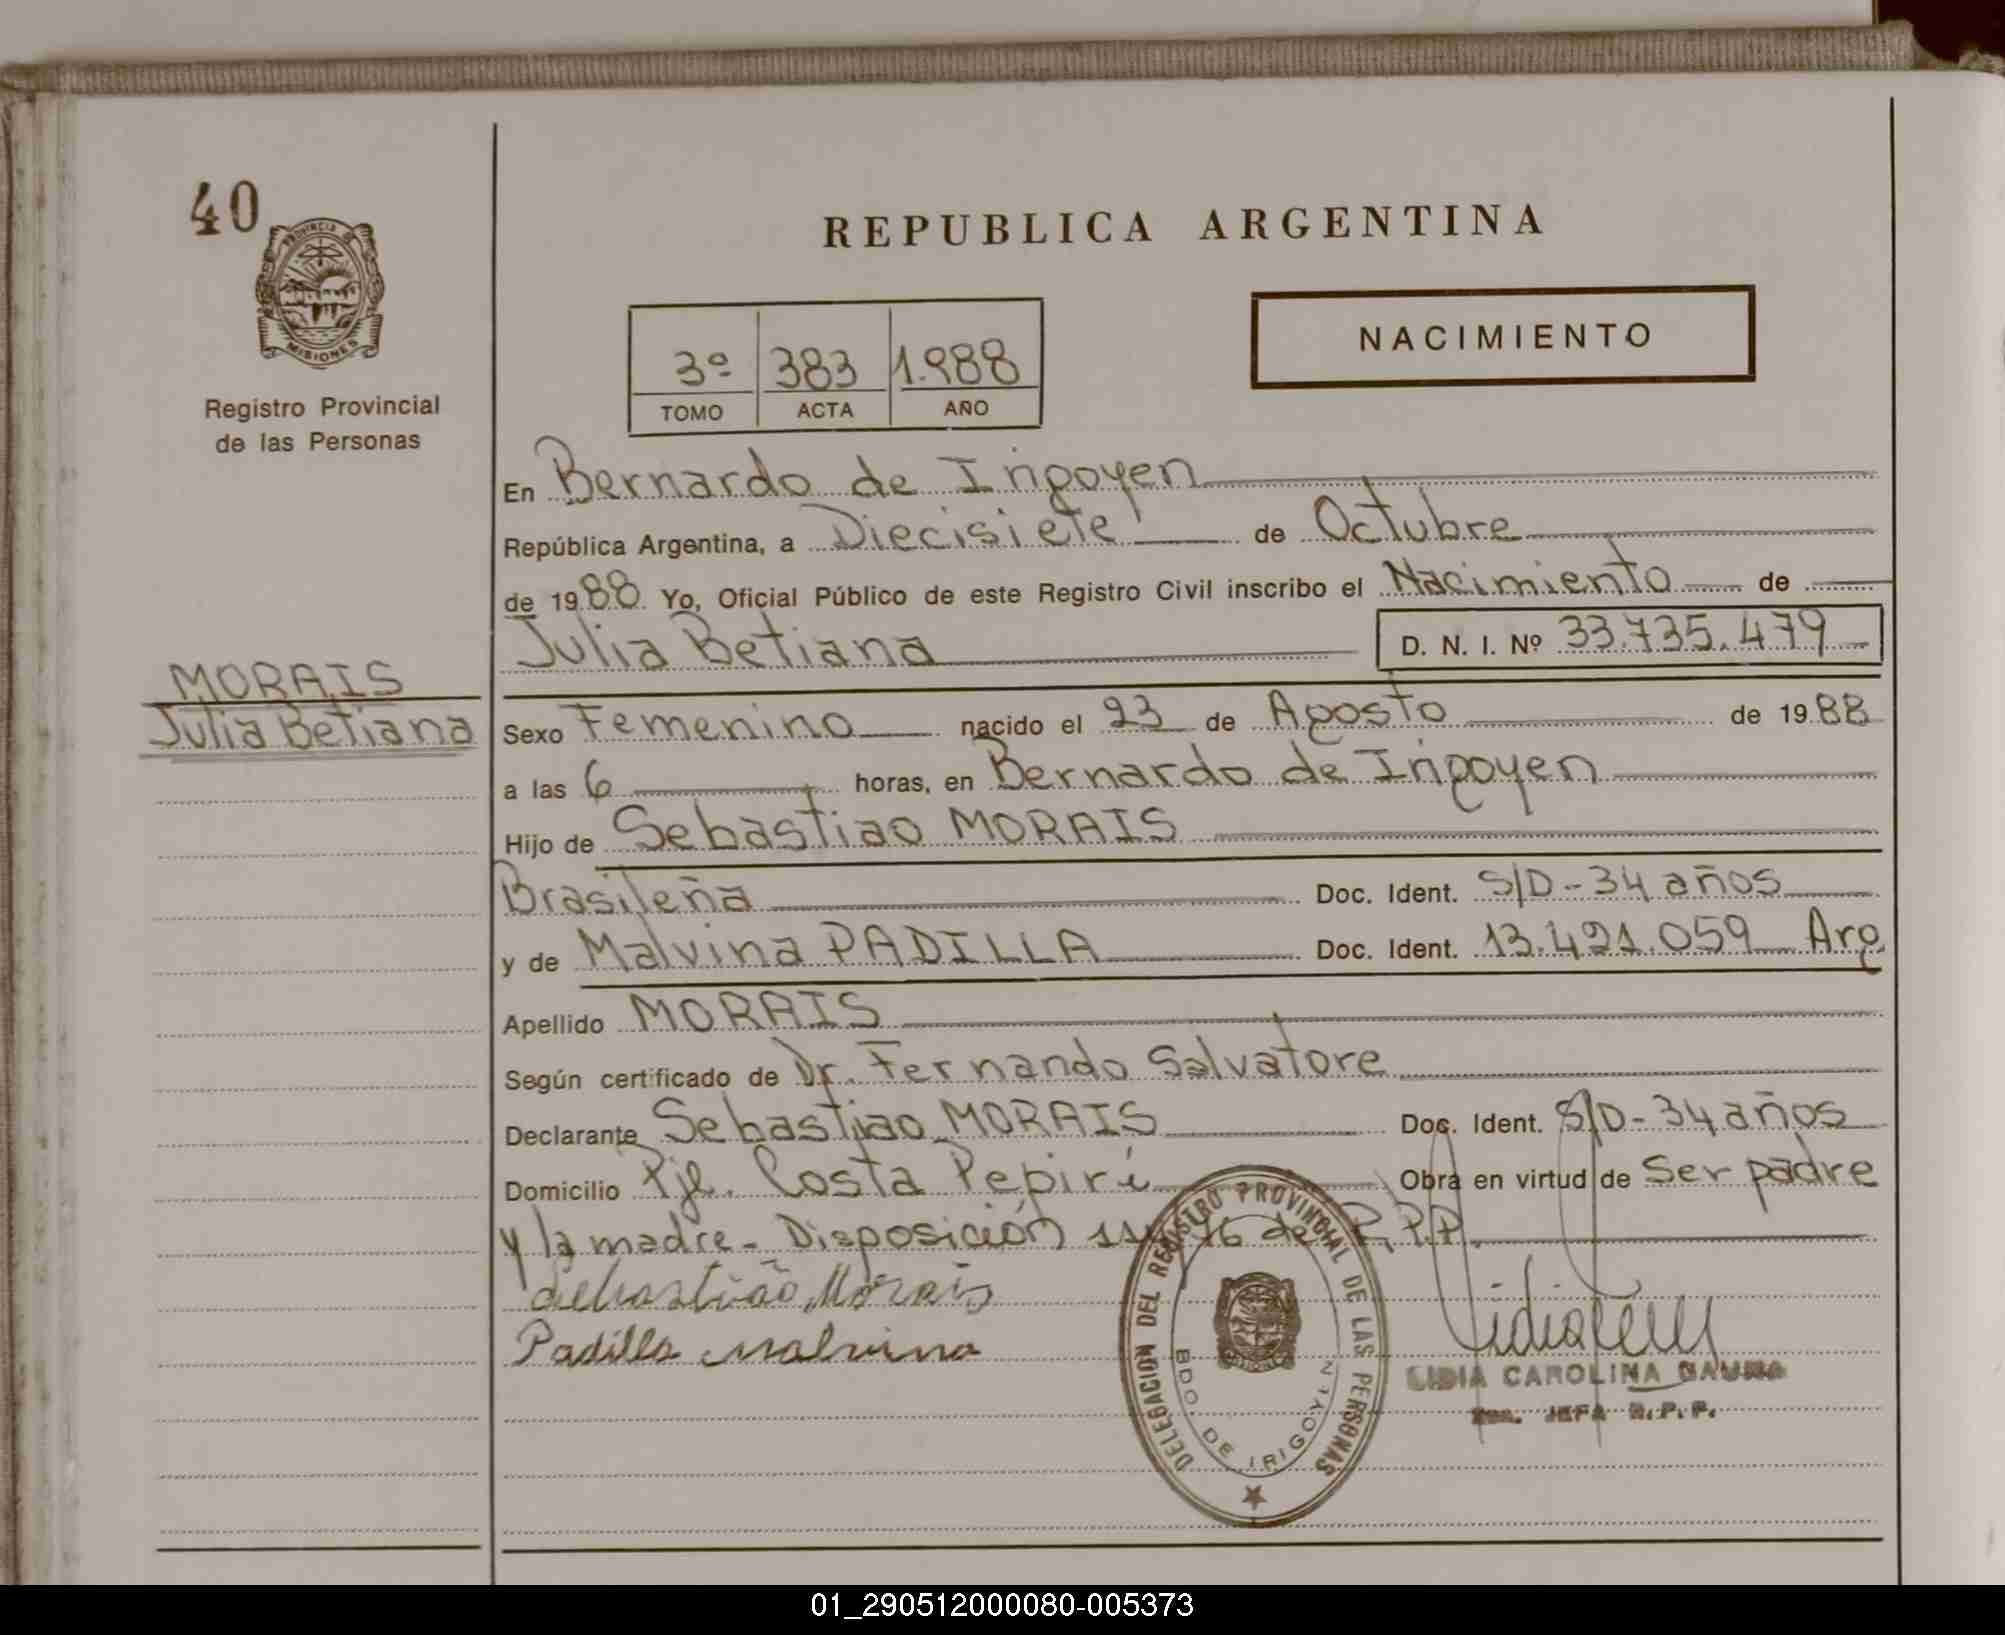 40
PROVINCIA DE
MISIONES
Registro Provincial
de las Personas
REPUBLICA ARGENTINA
NACIMIENTO
3º 383 1.988
TOMO ACTA AÑO
En Bernardo de Irigoyen
República Argentina, a Diecisiete de Octubre
de 1988 Yo, Oficial Público de este Registro Civil inscribo el Nacimiento de
Julia Betiana D. N. I. Nº 33.735.479
MORAIS
Julia Betiana
Sexo Femenino nacido el 23 de Agosto de 1988
a las 6 horas, en Bernardo de Irigoyen
Hijo de Sebastiao MORAIS
Brasileña Doc. Ident. S/D-34 años
y de Malvina PADILLA Doc. Ident. 13.421.059 Arg
Apellido MORAIS
Según certificado de Dr. Fernando Salvatore
Declarante Sebastiao MORAIS Doc. Ident. S/D-34 años
Domicilio Pje. Costa Pepirí Obra en virtud de Ser padre
y la madre- Disposición de R.P.P.
Sebastião Morais
Padilla Malvina
DELEGACION DEL REGISTRO PROVINCIAL DE LAS PERSONAS
BDO. DE IRIGOYEN
LIDIA CAROLINA GAUNA
JEFA R.P.P.
01_290512000080-005373